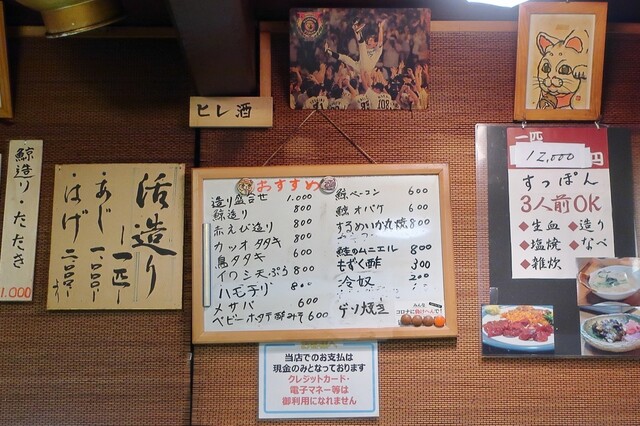 ヒレ酒
鯨造り・たたき
1.000
活造り
一匹
あじ 一、八〇〇
はげ 二、〇〇〇より
おすすめ
造り盛合せ 1.000
鯨造り 800
赤えび造り 800
カツオタタキ 800
鳥タタキ 600
イワシ天ぷら 800
ハモ子り 800
〆サバ 600
ベビーホタテ酢みそ 600
鯨ベーコン 600
鯨オバケ 600
するめいか丸焼 800
鮭のムニエル 800
もずく酢 300
冷奴 200
ゲソ焼き
みんな
コロナに負けへんで!
当店でのお支払は
現金のみとなっております
クレジットカード・
電子マネー等は
御利用になれません
一匹
12,000円
すっぽん
3人前OK
◆生血 ◆造り
◆塩焼 ◆なべ
◆雑炊